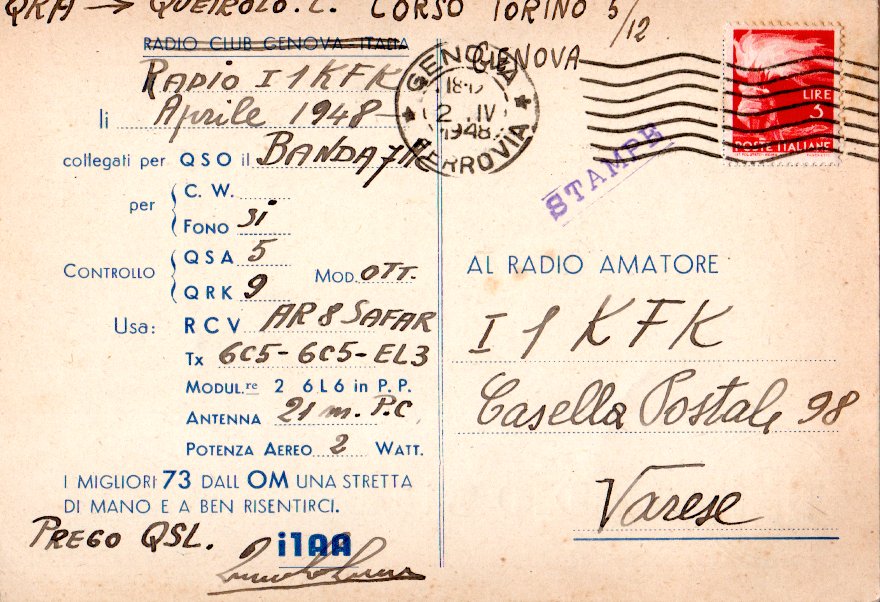 QRA → QUEIROLO. L. CORSO TORINO 5/12
GENOVA
RADIO CLUB GENOVA - ITALIA
RADIO I1KFK
li Aprile 1948
collegati per QSO il BANDA 7M
per
C. W.
FONO SI
CONTROLLO
QSA 5
QRK 9
MOD. OTT.
Usa: RCV AR 8 SAFAR
Tx 6C5-6C5-EL3
MODUL.re 2 6L6 in P. P.
ANTENNA 21 m. P.C
POTENZA AEREO 2 WATT.
I MIGLIORI 73 DALL OM UNA STRETTA
DI MANO E A BEN RISENTIRCI.
PREGO QSL.
i1AA
GENOVA
2 IV
1948
FERROVIA
STAMPE
LIRE
3
POSTE ITALIANE
AL RADIO AMATORE
I 1 KFK
Casella Postale 98
Varese